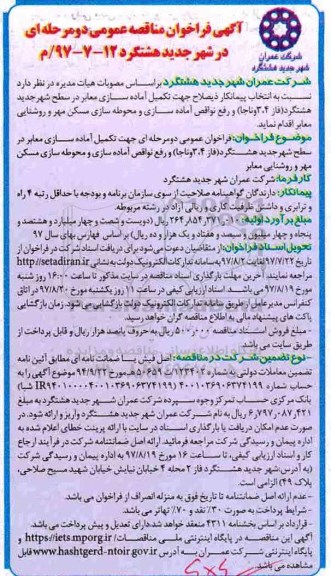 آگهی فراخوان مناقصه عمومی دو مرحله ای
در شهر جدید هشتگرد ۱۲-۷-۹۷/م
شرکت عمران
شهر جدید هشتگرد
شرکت عمران شهر جدید هشتگرد براساس مصوبات هیات مدیره در نظر دارد
نسبت به انتخاب پیمانکار ذیصلاح جهت تکمیل آماده سازی معابر در سطح شهر جدید
هشتگرد(فاز ۳،۴ وناجا) و رفع نواقص آماده سازی و محوطه سازی مسکن مهر و روشنایی
معابر اقدام نماید.
موضوع فراخوان: فراخوان عمومی دو مرحله ای جهت تکمیل آماده سازی معابر در
سطح شهر جدید هشتگرد (فاز ۳،۴ وناجا) و رفع نواقص آماده سازی و محوطه سازی مسکن
مهر و روشنایی معابر
کارفرما: شرکت عمران شهر جدید هشتگرد
پیمانکار: دارندگان گواهینامه صلاحیت از سوی سازمان برنامه و بودجه با حداقل رتبه ۴ راه
و ترابری و داشتن ظرفیت کاری و ریالی آزاد در رشته مربوطه.
مبلغ برآورد اولیه: ۲۶۴،۸۵۴،۳۷۱،۰۱۰ ریال (دویست و شصت و چهار میلیارد و هشتصد و
پنجاه و چهار میلیون و سیصد و هفتاد و یک هزار و ده ریال) بر اساس فهارس بهای سال ۹۷
تحویل اسناد فراخوان: از متقاضیان دعوت می شود برای دریافت اسناد شرکت در فراخوان از
تاریخ ۹۷/۷/۲۲ لغایت ۹۷/۸/۲ به سامانه تدارکات الکترونیک دولت به نشانی http://setadiran.ir
مراجعه نمایند، آخرین مهلت بارگذاری اسناد مناقصه در سایت مذکور تا ساعت ۱۶:۰۰ روز شنبه
مورخ ۹۷/۸/۱۹ می باشد. اسناد ارزیابی کیفی در ساعت ۱۱ روز یکشنبه مورخ ۹۷/۸/۲۰ در اتاق
کنفرانس مدیرعامل از طریق سامانه تدارکات الکترونیک دولت بازگشایی می شود. زمان بازگشایی
پاکت های پیشنهاد مالی به اطلاع مناقصه گران خواهد رسید.
- مبلغ فروش اسناد مناقصه ۵۰۰،۰۰۰ ریال به حروف پانصد هزار ریال و قابل پرداخت از
طریق سایت می باشد.
- نوع تضمین شرکت در مناقصه: اصل فیش یا ضمانت نامه ای مطابق آئین نامه
تضمین معاملات دولتی به شماره ۱۲۳۴۰۲/ت۵۰۶۵۹ه مورخ ۹۴/۹/۲۲ موضوع واریز به
حساب شماره ۴۰۰۱۰۳۶۹۰۶۳۷۴۱۹۹ (شبا
بانک مرکزی حساب تمرکز وجوه سپرده شرکت عمران شهر جدید هشتگرد به مبلغ
۶،۷۹۷،۰۸۷،۴۲۱ ریال به نام شرکت عمران شهر جدید هشتگرد واریز و ارائه شود. در
صورت عدم امکان دریافت یا بارگذاری اسناد در سایت با ارائه پرینت خطای اعلام شده به
اداره پیمان و رسیدگی شرکت مراجعه فرمائید. ارائه اصل ضمانتنامه شرکت در فرآیند ارجاع
کار و اسناد ارزیابی کیفی، تا ساعت ۱۶ مورخ ۹۷/۸/۱۹ به اداره پیمان و رسیدگی شرکت
(به آدرس شهر جدید هشتگرد فاز ۲ محله ۴ خیابان نیایش خیابان شهید مسیح صلاحی،
پلاک ۴۹) الزامی است.
- عدم ارائه اصل ضمانتنامه تا تاریخ فوق به منزله انصراف از فراخوان می باشد.
- شرایط پرداخت به صورت ۳۰٪ نقد و ۷۰٪ تهاتر می باشد.
- قرارداد بر اساس بخشنامه ۴۳۱۱ منعقد خواهد شد. دارای تعدیل و پیش پرداخت می باشد.
آگهی این مناقصه در پایگاه اینترنتی ملی مناقصات/https://iets.mporg.ir و
پایگاه اینترنتی شرکت عمران به آدرس www.hashtgerd-ntoir.gov.ir قابل
مشاهده می باشد.